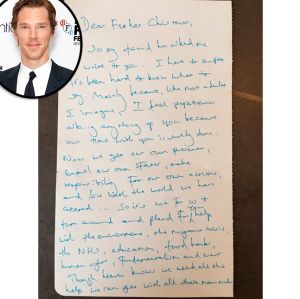 Dear Father Christmas,
So my friend has asked me
write to you. I have to confess
it's been hard to know what to
say. Mainly because, like most adults
I imagine, I feel
asking anything of you because
our time with you is surely done.
Now we get our own presents,
our own, take
responsibility for our own actions,
and live with the world we have
created... So it's not for us to
turn around and plead for help
with the environment, the migrant crisis,
the NHS, education, food banks,
human rights, fundamentalism and war.
Though heaven knows we need all the
help we can get with all these man made